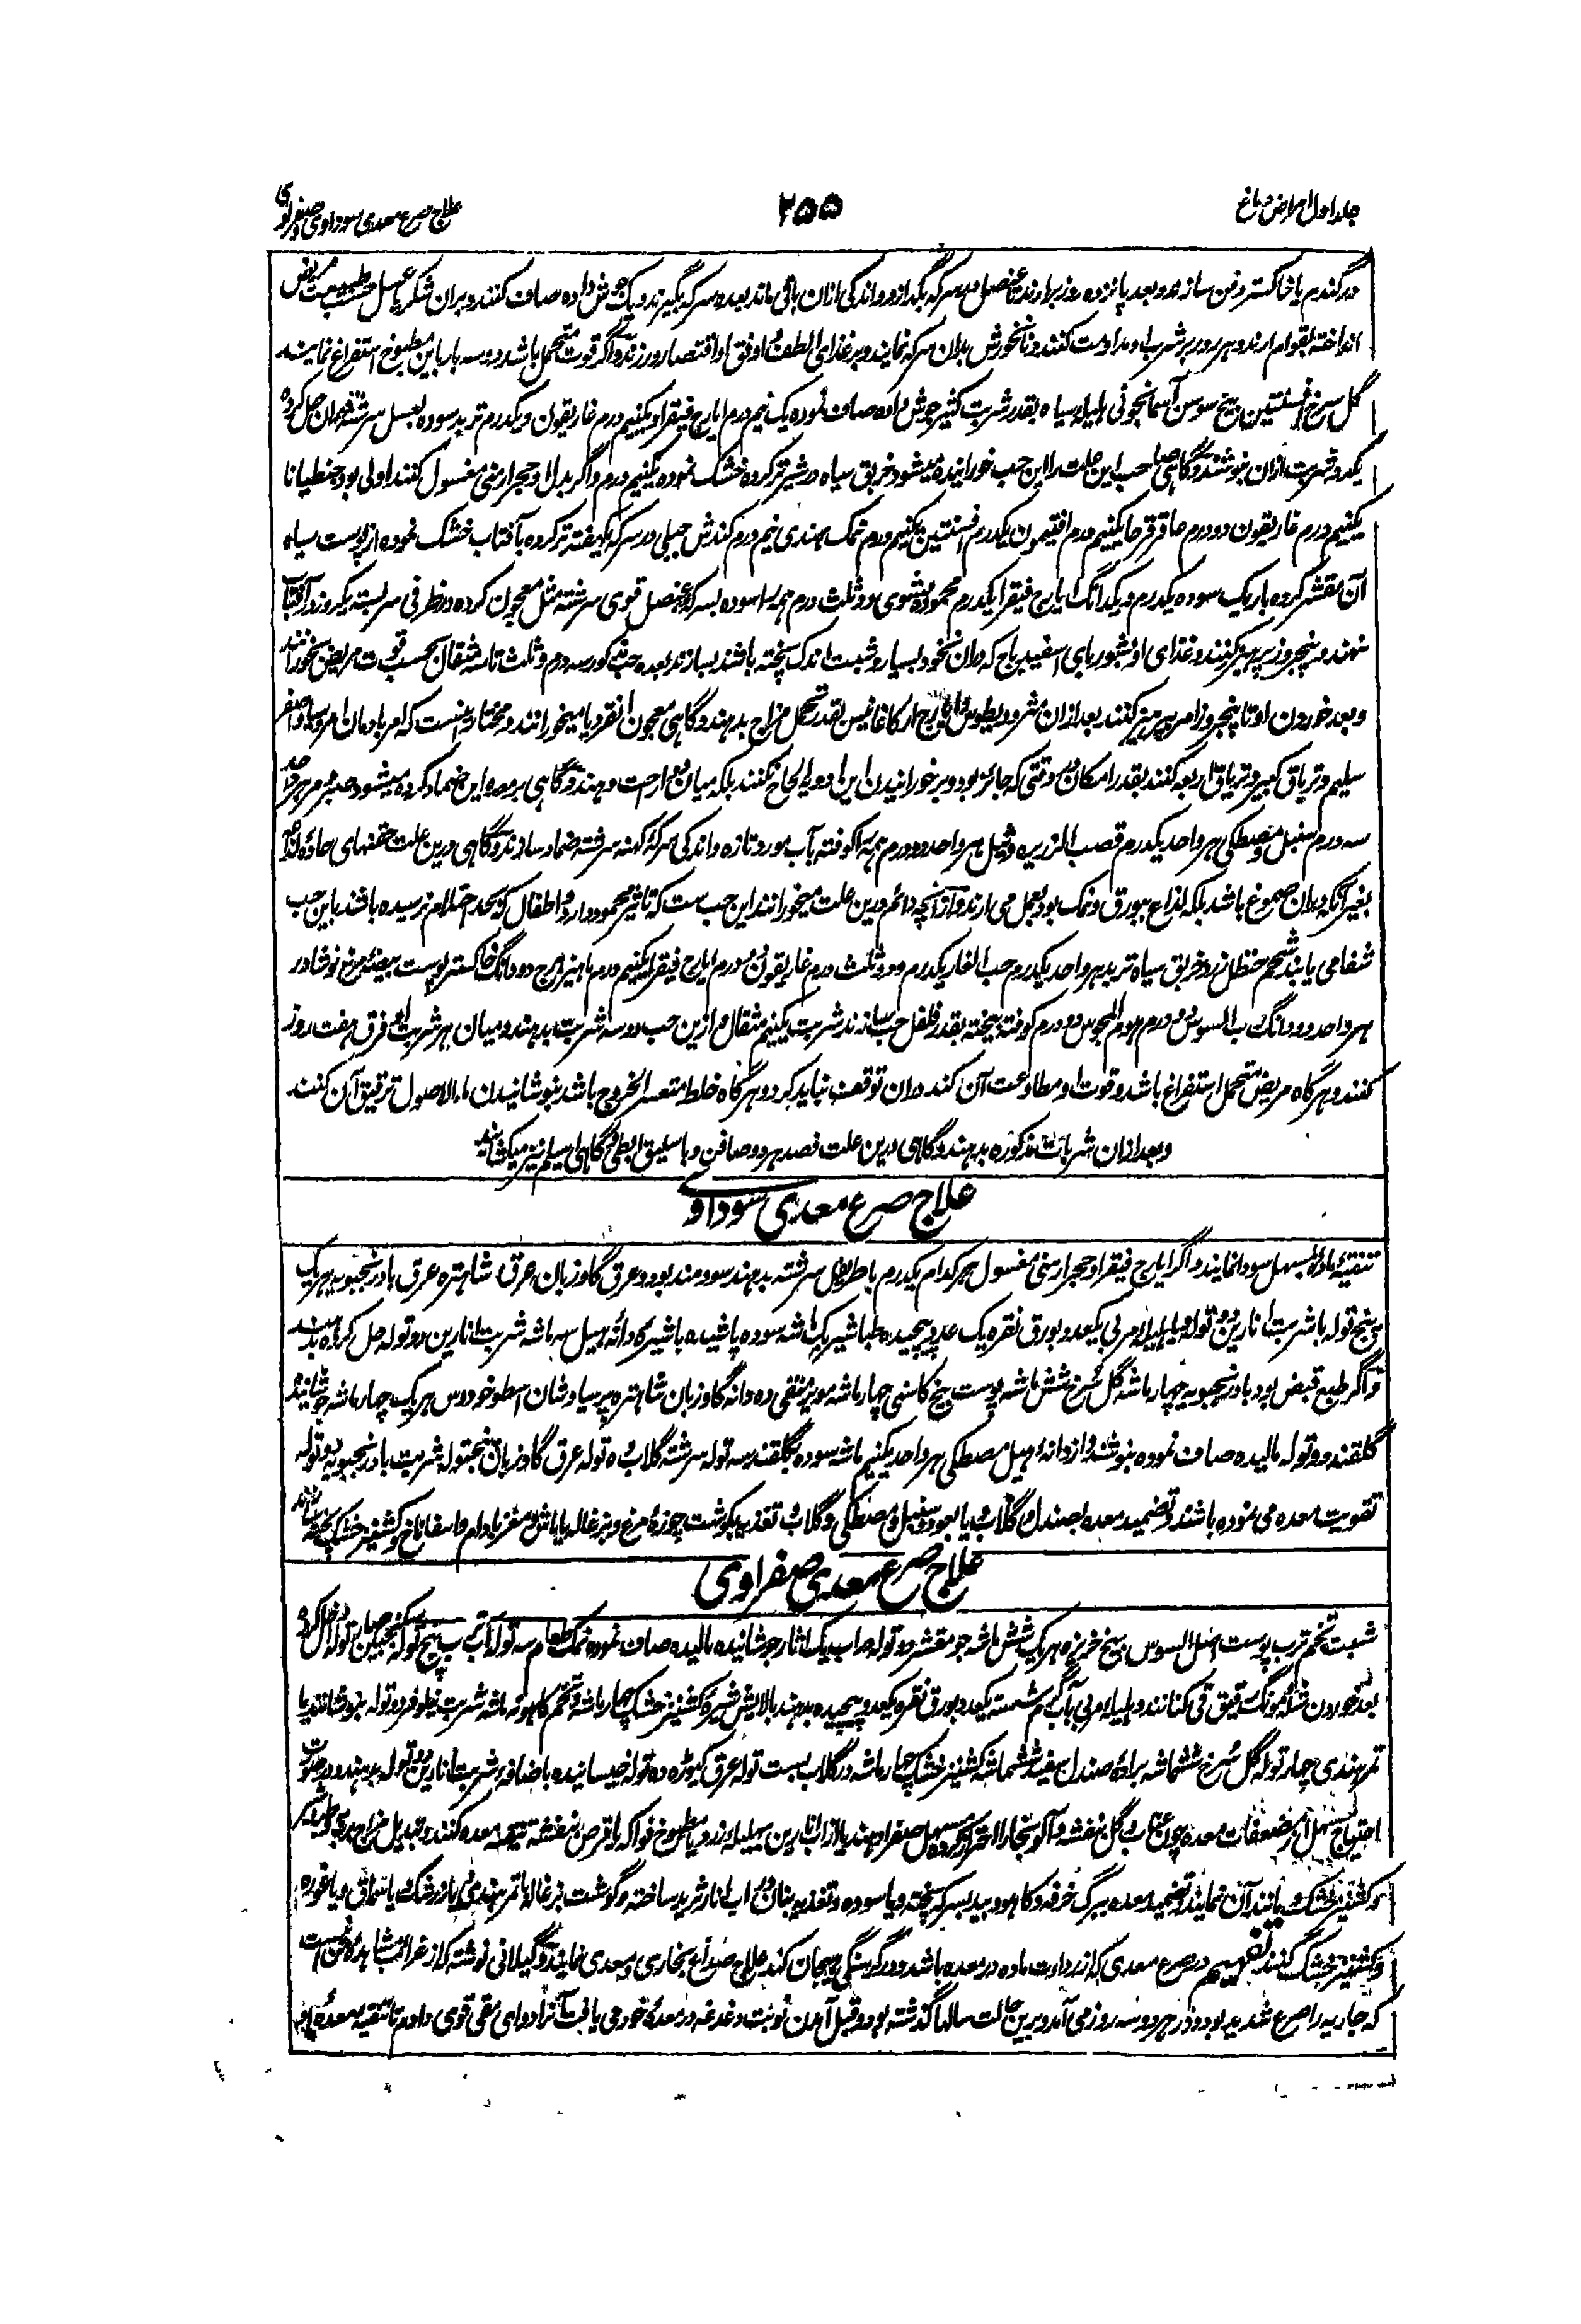 جلد اول امراض دماغ
۲۵۵
علاج صرع معدی سوداوی و صفراوی
در گندم یا خاکستر دفن سازند و بعد پانزده روز برارند تا عنصل در سرکه بگدازد و اندکی ازان باقی ماند بعده سرکه بگیرند و یک جوش داده صاف کنند و بران شکر یا عسل حسب طبیعت مریض
انداخته بقوام ارند و هر روز بر شرب او مداومت کنند و نانخورش بدان سرکه نمایند و بر غذای الطف و اوفق او اقتصار ورزند و اگر قوت متحمل باشد دو سه بار باین مطبوخ استفراغ نمایند
گل سرخ افسنتین بیخ سوسن آسمانجونی هلیله سیاه بقدر شربت کثیر جوش داده صاف نموده یک نیم درم ایارج فیقرا و یکنیم درم غاریقون و یکدرم تربد سوده بعسل سرشته دران حل کرده
یکدو شربت ازان بنوشند و گاهی صاحب این علت را این حب خورانیده میشود خربق سیاه در شیر تر کرده خشک نموده یکنیم درم و اگر بدل او حجر ارمنی مغسول کنند اولی بود جنطیانا
یکنیم درم غاریقون دو درم عاقرقرحا یکنیم درم افتیمون یکدرم افسنتین یکنیم درم نمک هندی نیم درم کندش جبلی در سرکه یکهفته تر کرده بآفتاب خشک نموده از پوست سیاه
آن مقشر کرده باریک سوده یکدرم و یکدانگ ایارج فیقرا یکدرم محموده مشوی دو ثلث درم همه را سوده بسرکه عنصل قوی سرشته مثل معجون کرده در ظرفی سربسته یکروز در آفتاب
نهند و پنجروز پرهیز کنند و غذای او شوربای اسفیدباج که دران نخود بسیار و شبت اندک پخته باشند بسازند بعده حب مذکور سه درم و ثلث تا سه مثقال بحسب قوت مریض بخورانند
و بعد خوردن او تا پنجروز امر بپرهیز کنند بعد ازان مثرودیطوس و ایارج ارکاغانیس بقدر تحمل مزاج بدهند و گاهی معجون انقردیا میخورانند و مختار اینست که امر بادمان
سلیم و تریاق کبیر و تریاق اربعه کنند بقدر امکان و وقتی که جائز بود و بر خورانیدن این ادویه الحاح نکنند بلکه میان او راحت دهند و گاهی بر معده این ضماد کرده میشود صبر مر هر واحد
سه درم سنبل و مصطکی هر واحد یکدرم قصب الذریره و هیل هر واحد دو درم همه را کوفته بآب مورد تازه و اندکی سرکه کهنه سرشته ضماد سازند و گاهی درین علت حقنهای حاده لذاعه
بغیر آنکه دران صموغ باشد بلکه لذاع ببورق و نمک بود بعمل می ارند و از آنچه دائم درین علت میخورانند این حب ست که تاثیر محمود دارد و اطفال که بحد احتلام نرسیده باشند باین حب
شفا می یابند شحم حنظل زرد خربق سیاه تربد هر واحد یکدرم حب الغار یکدرم و دو ثلث درم غاریقون دو درم ایارج فیقرا یکنیم درم ماهیزهرج دو دانگ خاکستر پوست بیضه مرغ نوشادر
هر واحد دو دانگ رب السوس دو درم هوم المجوس دو درم کوفته بیخته بقدر فلفل حب سازند شربت یکنیم مثقال و ازین حب دو سه شربت بدهند و میان هر شربت او فرق هفت روز
کنند و هرگاه مریض متحمل استفراغ باشد و قوت او مطاوعت آن کند دران توقف نباید کرد و هرگاه خلط متعسر الخروج باشد بنوشانیدن ماء الاصول ترقیق آن کنند
و بعد ازان شربات مذکوره بدهند و گاهی درین علت فصد هر دو صافن و باسلیق ابطی و گاهی اسیلم نیز میکشایند
علاج صرع معدی سوداوی
تنقیه ماده بمسهل سودا نمایند و اگر ایارج فیقرا و حجر ارمنی مغسول هر کدام یکدرم باطریفل سرشته بدهند سودمند بود و عرق گاوزبان عرق شاهتره عرق بادرنجبویه هر یک
پنج توله با شربت انارین دو توله و یا هلیله مربی یکعدد بورق نقره یک عدد پیچیده طباشیر یکماشه سوده پاشیده با شیره دانه هیل سه ماشه شربت انارین دو توله حل کرده بدهند
و اگر طبع قبض بود بادرنجبویه چهار ماشه گل سرخ شش ماشه پوست بیخ کاسنی چهار ماشه مویز منقی ده دانه گاوزبان شاهتره پرسیاوشان اسطوخودوس هر یک چهار ماشه جوشانیده
گلقند دو توله مالیده صاف نموده بنوشند و از دانه هیل مصطکی هر واحد یکنیم ماشه سوده بگلقند سه توله سرشته گلاب ده توله عرق گاوزبان پنجتوله شربت بادرنجبویه دو توله
تقویت معده می نموده باشند و تضمید معده بصندل و گلاب یا بعود و سنبل و مصطکی و گلاب تغذیه بگوشت چوزه مرغ و بزغاله یا ماش و مغز بادام و اسفاناخ و کشنیز خشک پخته سازند
علاج صرع معدی صفراوی
شبت تخم ترب پوست اصل السوس بیخ خرپزه هر یک شش ماشه جو مقشر دو توله در آب یک آثار جوشانیده مالیده صاف نموده نمک طعام سه توله آب ترب پنج توله سکنجبین چهار توله حل کرده
بعد خوردن قدری مونگ رقیق قی کنانند و هلیله مربی بآب گرم شسته یکعدد بورق نقره یکعدد پیچیده بدهند بالایش شیره کشنیز خشک چهار ماشه و تخم کاهو نه ماشه شربت نیلوفر دو توله بنوشانند یا
تمر هندی چهار توله گل سرخ ششماشه براده صندل سفید ششماشه کشنیز خشک چهار ماشه در گلاب بست توله عرق کیوره ده توله خیسانیده باضافه شربت انارین دو توله بدهند و در صورت
احتیاج مسهل از مضعفات معده چون عناب و گل بنفشه و آلو بخارا احتراز کرده مسهل صفرا دهند یا از آب انارین بهلیله زرد یا مطبوخ فواکه یا قرص بنفشه تنقیه معده کنند و تبدیل مزاج
و کشنیز خشک و مانند آن نمایند و تضمید معده ببرگ خرفه و کاهو و بید بسرکه پخته و یا سوده و تغذیه بنان در آب انار ثرید ساخته و گوشت بزغاله با تمر هندی و یا زرشک یا سماق و یا غوره
و کشنیز خشک کنند تفهیم در صرع معدی که از رداءت ماده در معده باشد و در گرسنگی هیجان کند علاج صداع بخاری و معدی نمایند و گیلانی نوشته که از غرائب مشاهده من اینست
که جاریه را صرع شدید بود و در هر دو سه روز می آمد و برین حالت سالها گذشته بود و قبل آمدن نوبت دغدغه در معده خود می یافت آنرا دوای مقی قوی دادم تا تنقیه معده او